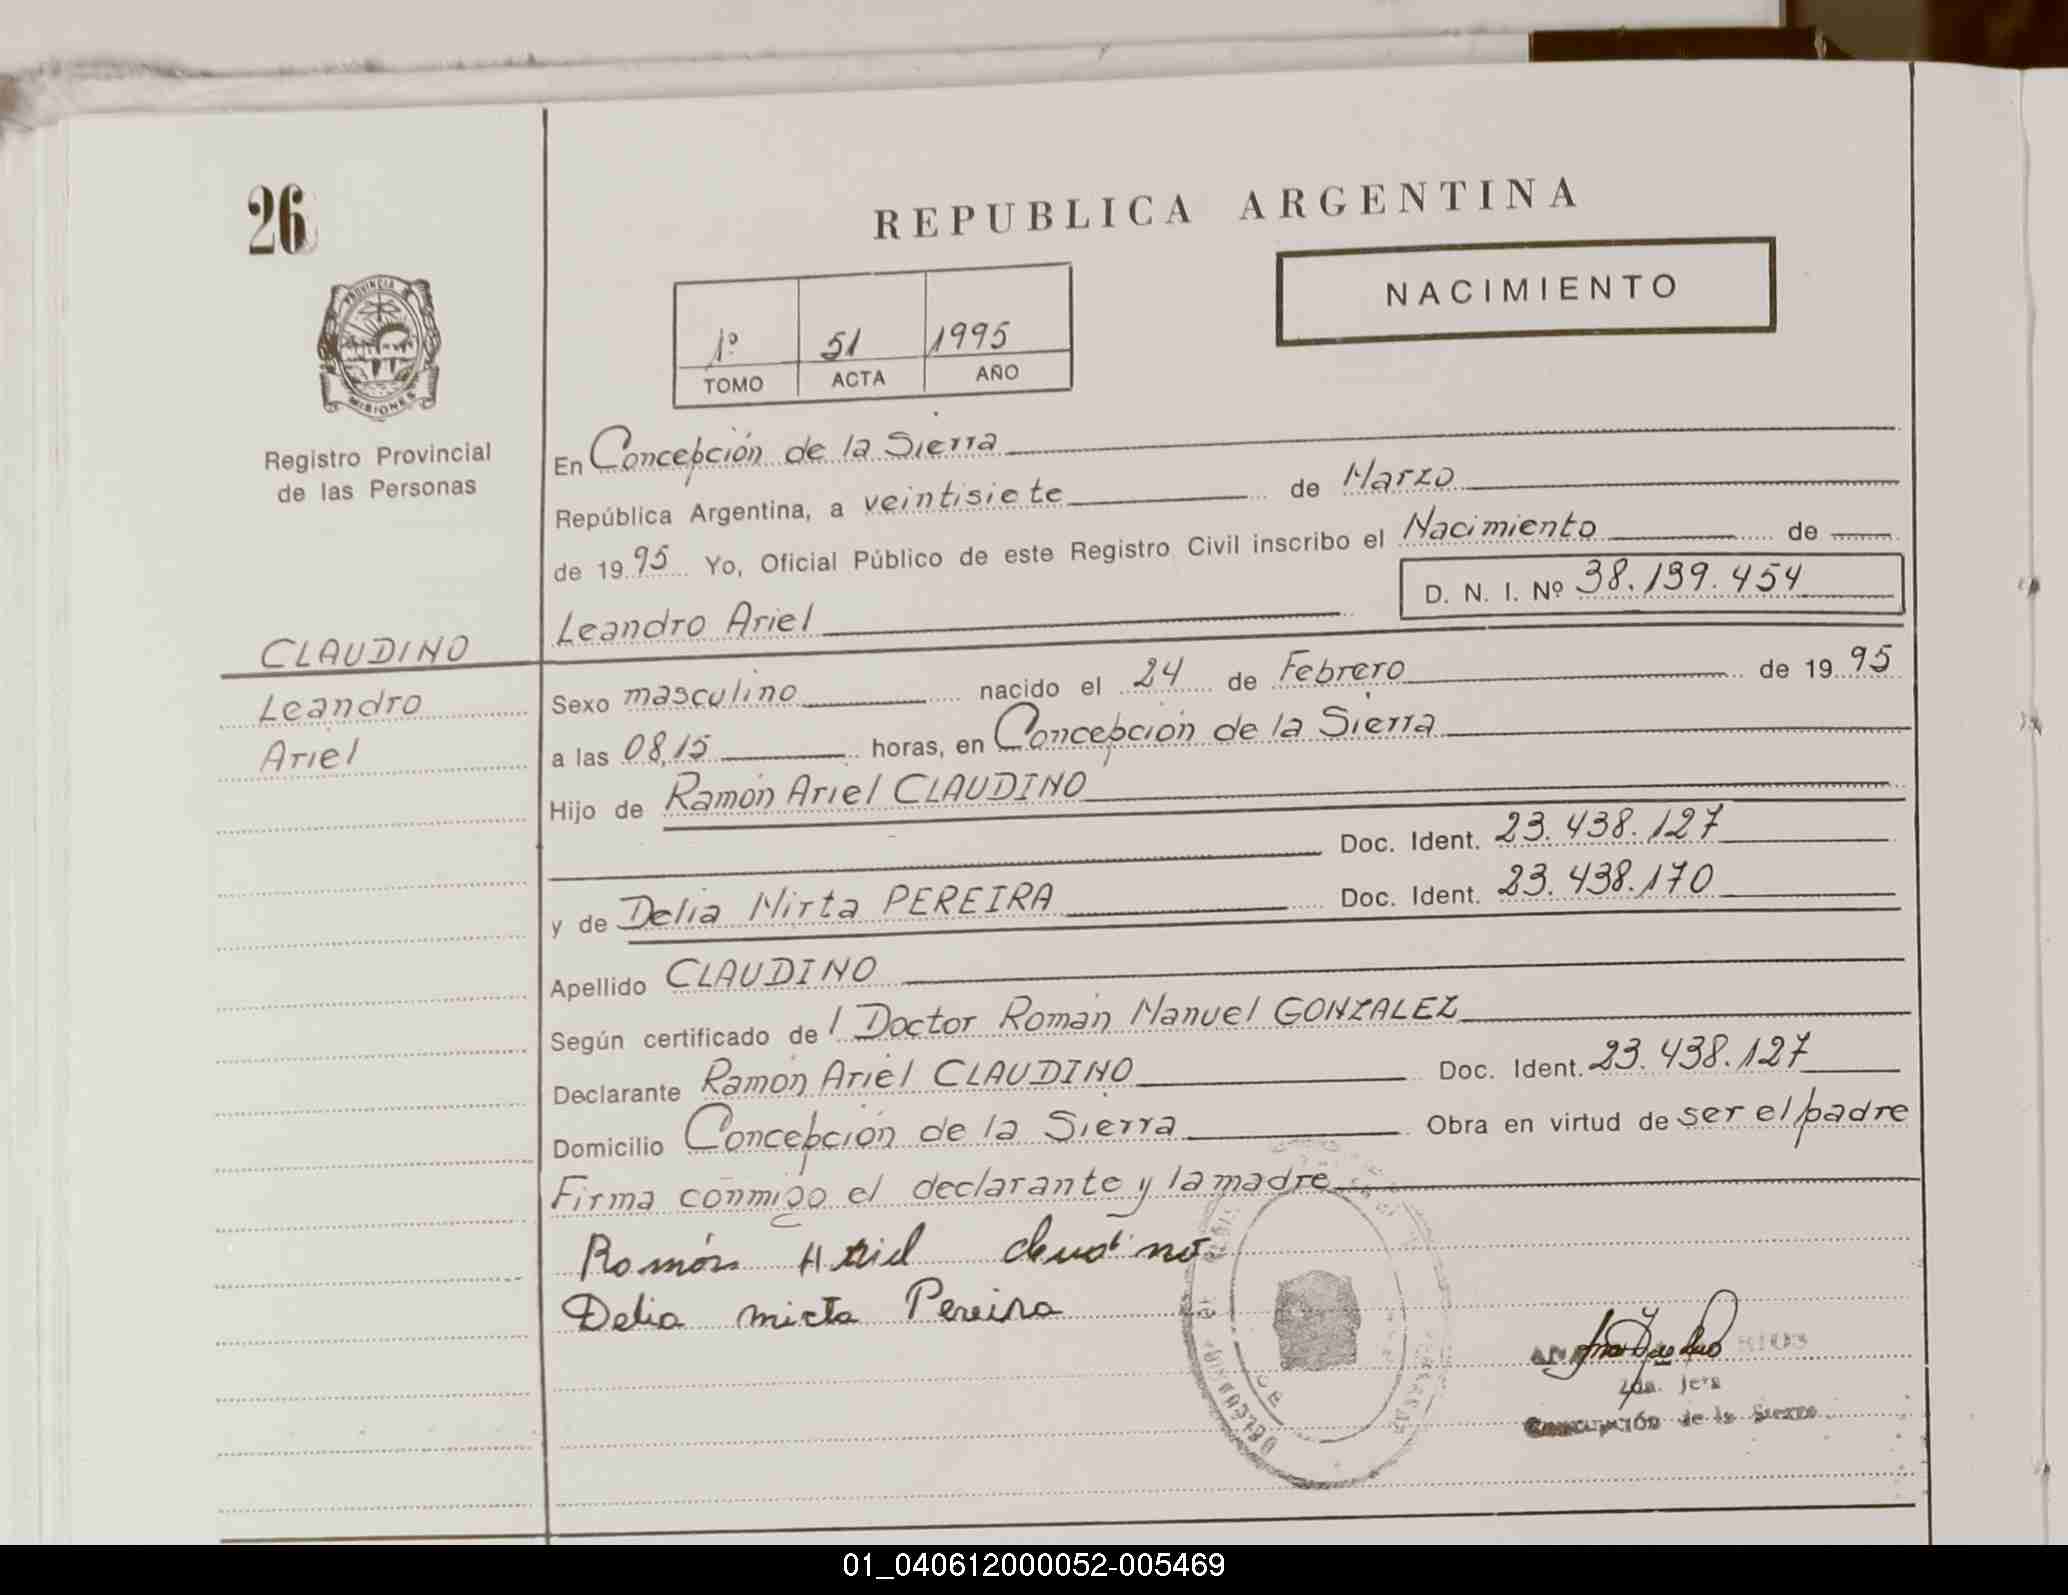 26
REPUBLICA ARGENTINA
NACIMIENTO
1º 51 1995
TOMO ACTA AÑO
PROVINCIA
MISIONES
Registro Provincial
de las Personas
En Concepción de la Sierra
República Argentina, a veintisiete de Marzo
de 1995 Yo, Oficial Público de este Registro Civil inscribo el Nacimiento de
D. N. I. Nº 38.139.454
Leandro Ariel
CLAUDINO
Leandro
Ariel
Sexo masculino nacido el 24 de Febrero de 1995
a las 08,15 horas, en Concepción de la Sierra
Hijo de Ramón Ariel CLAUDINO
Doc. Ident. 23.438.127
y de Delia Mirta PEREIRA Doc. Ident. 23.438.170
Apellido CLAUDINO
Según certificado de l Doctor Román Manuel GONZALEZ
Declarante Ramón Ariel CLAUDINO Doc. Ident. 23.438.127
Domicilio Concepción de la Sierra Obra en virtud de ser el padre
Firma conmigo el declarante y la madre
Ramón Ariel Claudino
Delia mirta Pereira
Concepción de la Sierra
01_040612000052-005469